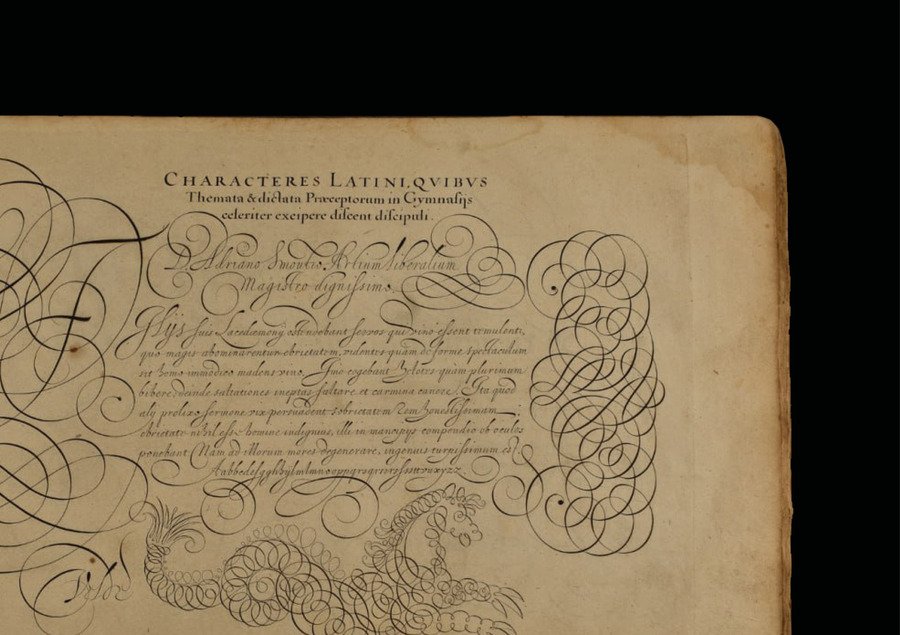 CHARACTERES LATINI, QVIBVS
Themata & dictata Præceptorum in Gymnasijs
celeriter exeipere discent discipuli.
D. Adriano Smoutio, Artium liberalium
Magistro dignissimo.
suis Lacedæmonij ostendebant servos qui vino essent temulenti,
quo magis abominarentur ebrietatem, videntes quàm deforme spectaculum
sit homo immodico madens vino. Imo cogebant Helotes quàm plurimum
bibere deinde saltationes ineptas saltare, et carmina canere. Ita quod
alij prolixo sermone vix persuadent sobrietatem rem honestissimam
ebrietate nihil esse homine indignius, illi in mancipijs compendio ob oculos
ponebant. Nam ad illorum mores degenerare, ingenuis turpissimum est.